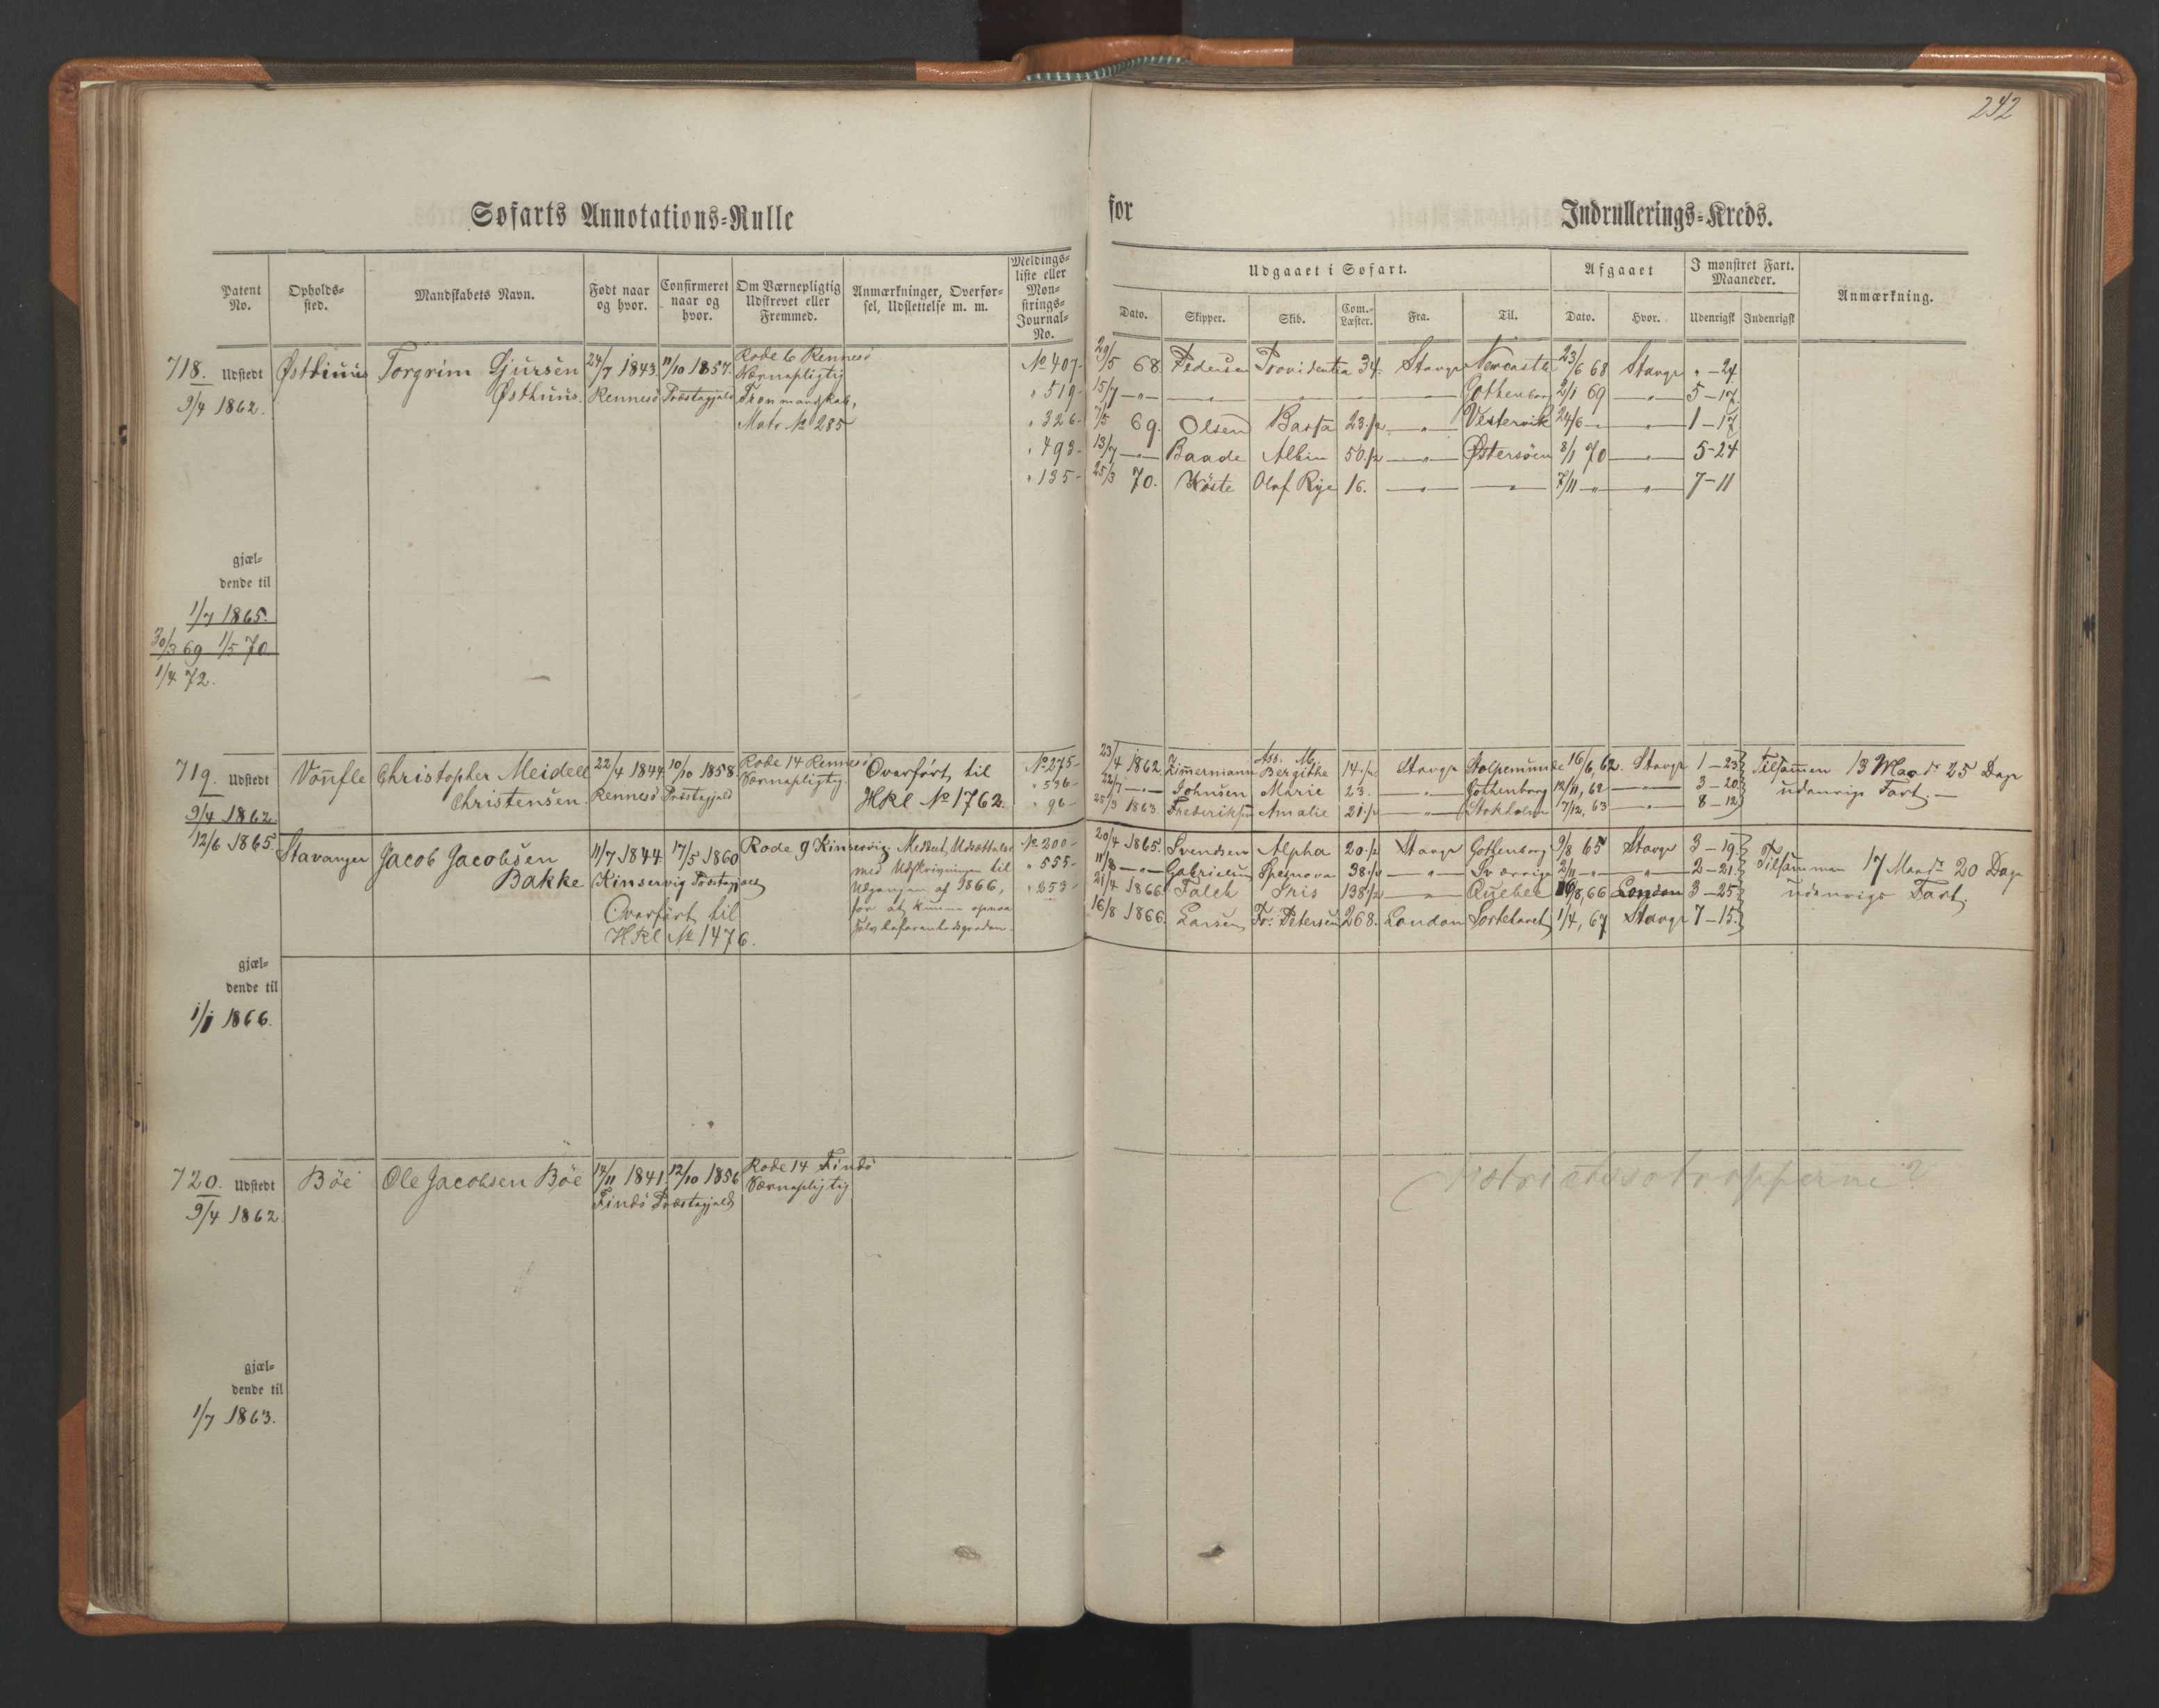 242
Søfarts Annotations-Rulle for Indrullerings-Kreds.
Patent No. Opholds-sted. Mandskabets Navn. Født naar og hvor. Confirmeret naar og hvor. Om Værnepligtig Udskrevet eller Fremmed. Anmærkninger, Overførsel, Udslettelse m. m. Meldings-liste eller Mønstrings-Journal-No.
Udgaaet i Søfart. Afgaaet I mønstret Fart. Maaneder. Anmærkning.
Dato. Skipper. Skib. Com.-Læster. Fra. Til. Dato. Hvor. Udenrigsk Indenrigsk
718. Udstedt Østhuus Torgrim Gjursen 24/7 1843 11/10 1857. Rode 6 Rennesö No 407-
9/4 1862. Østhuus. Rennesö Præstegjeld Værnepligtig
Matr No 285
" 519-
" 326-
" 493-
" 135-
29/5 68 Pedersen Providentia 34. Stavgr Newcastle 23/6 68 Stavgr " - 24
15/7 -"- Gothenborg 2/1 69 -"- 5 - 17.
7/5 69. Olsen Basta 23 1/2 -"- Vestervik 24/6 -"- 1 - 17
13/7 -"- Baade Albin 50 1/2 -"- Østersöen 8/1 70 -"- 5-24
25/3 70. Olaf Rye 16. -"- -"- 7/11 -"- 7-11
gjæl-
dende til
1/7 1865.
30/3 69 1/5 70.
1/4 72.
719. Udstedt Christopher Meidell 22/4 1844 10/10 1858. Rode 14 Rennesö Overført til No 275-
9/4 1862. Christensen. Rennesö Præstegjeld Værnepligtig. HRl No 1762. " 536-
" 96-
23/4 1862 Zimmermann Ass. M. Bergithe 14 1/2 Stavgr Stolpemunde 16/6, 62. Stavgr 1 - 23 Tilsammen 13 Maadr 25 Dage
22/7 -"- Johnsen Marie 23. -"- Gothenborg 12/11, 62 -"- 3 - 20 udenrigs Fart.
25/3 1863. Frederiksen Amalie 21 1/2 -"- Stokholm 7/12, 63 -"- 8 - 12
12/6 1865. Stavanger Jacob Jacobsen 11/7 1844 17/5 1860 Rode 9 Kinservig. No 200-
Bakke Kinservig Præstegjeld med Udskrivningen til " 555-
Overført til Udgangen af 1866, " 253-
HRl No 1476. for at kunne opnaa
20/4 1865. Svendsen Alpha 20 1/2 Stavgr Gothenborg 9/8 65 Stavgr 3 - 19 Tilsammen 17 Maadr 20 Dage
11/8 -"- Gabrielsen 38 1/2 -"- Sverrige 2/11 -"- -"- 2 - 21 udenrigs Fart.
21/4 1866 Falch Iris 138 1/2 -"- Quebec 16/8, 66 London 3 - 25
16/8 1866. Larsen Fr: Petersen 268. London Sortehavet 1/4, 67 Stavgr 7 - 15
gjæl-
dende til
1/1 1866.
720. Udstedt Böe Ole Jacobsen Böe 14/11 1841. 12/10 1856 Rode 14 Findö
9/4 1862. Findö Præstegjeld Værnepligtig
gjæl-
dende til
1/7 1863.